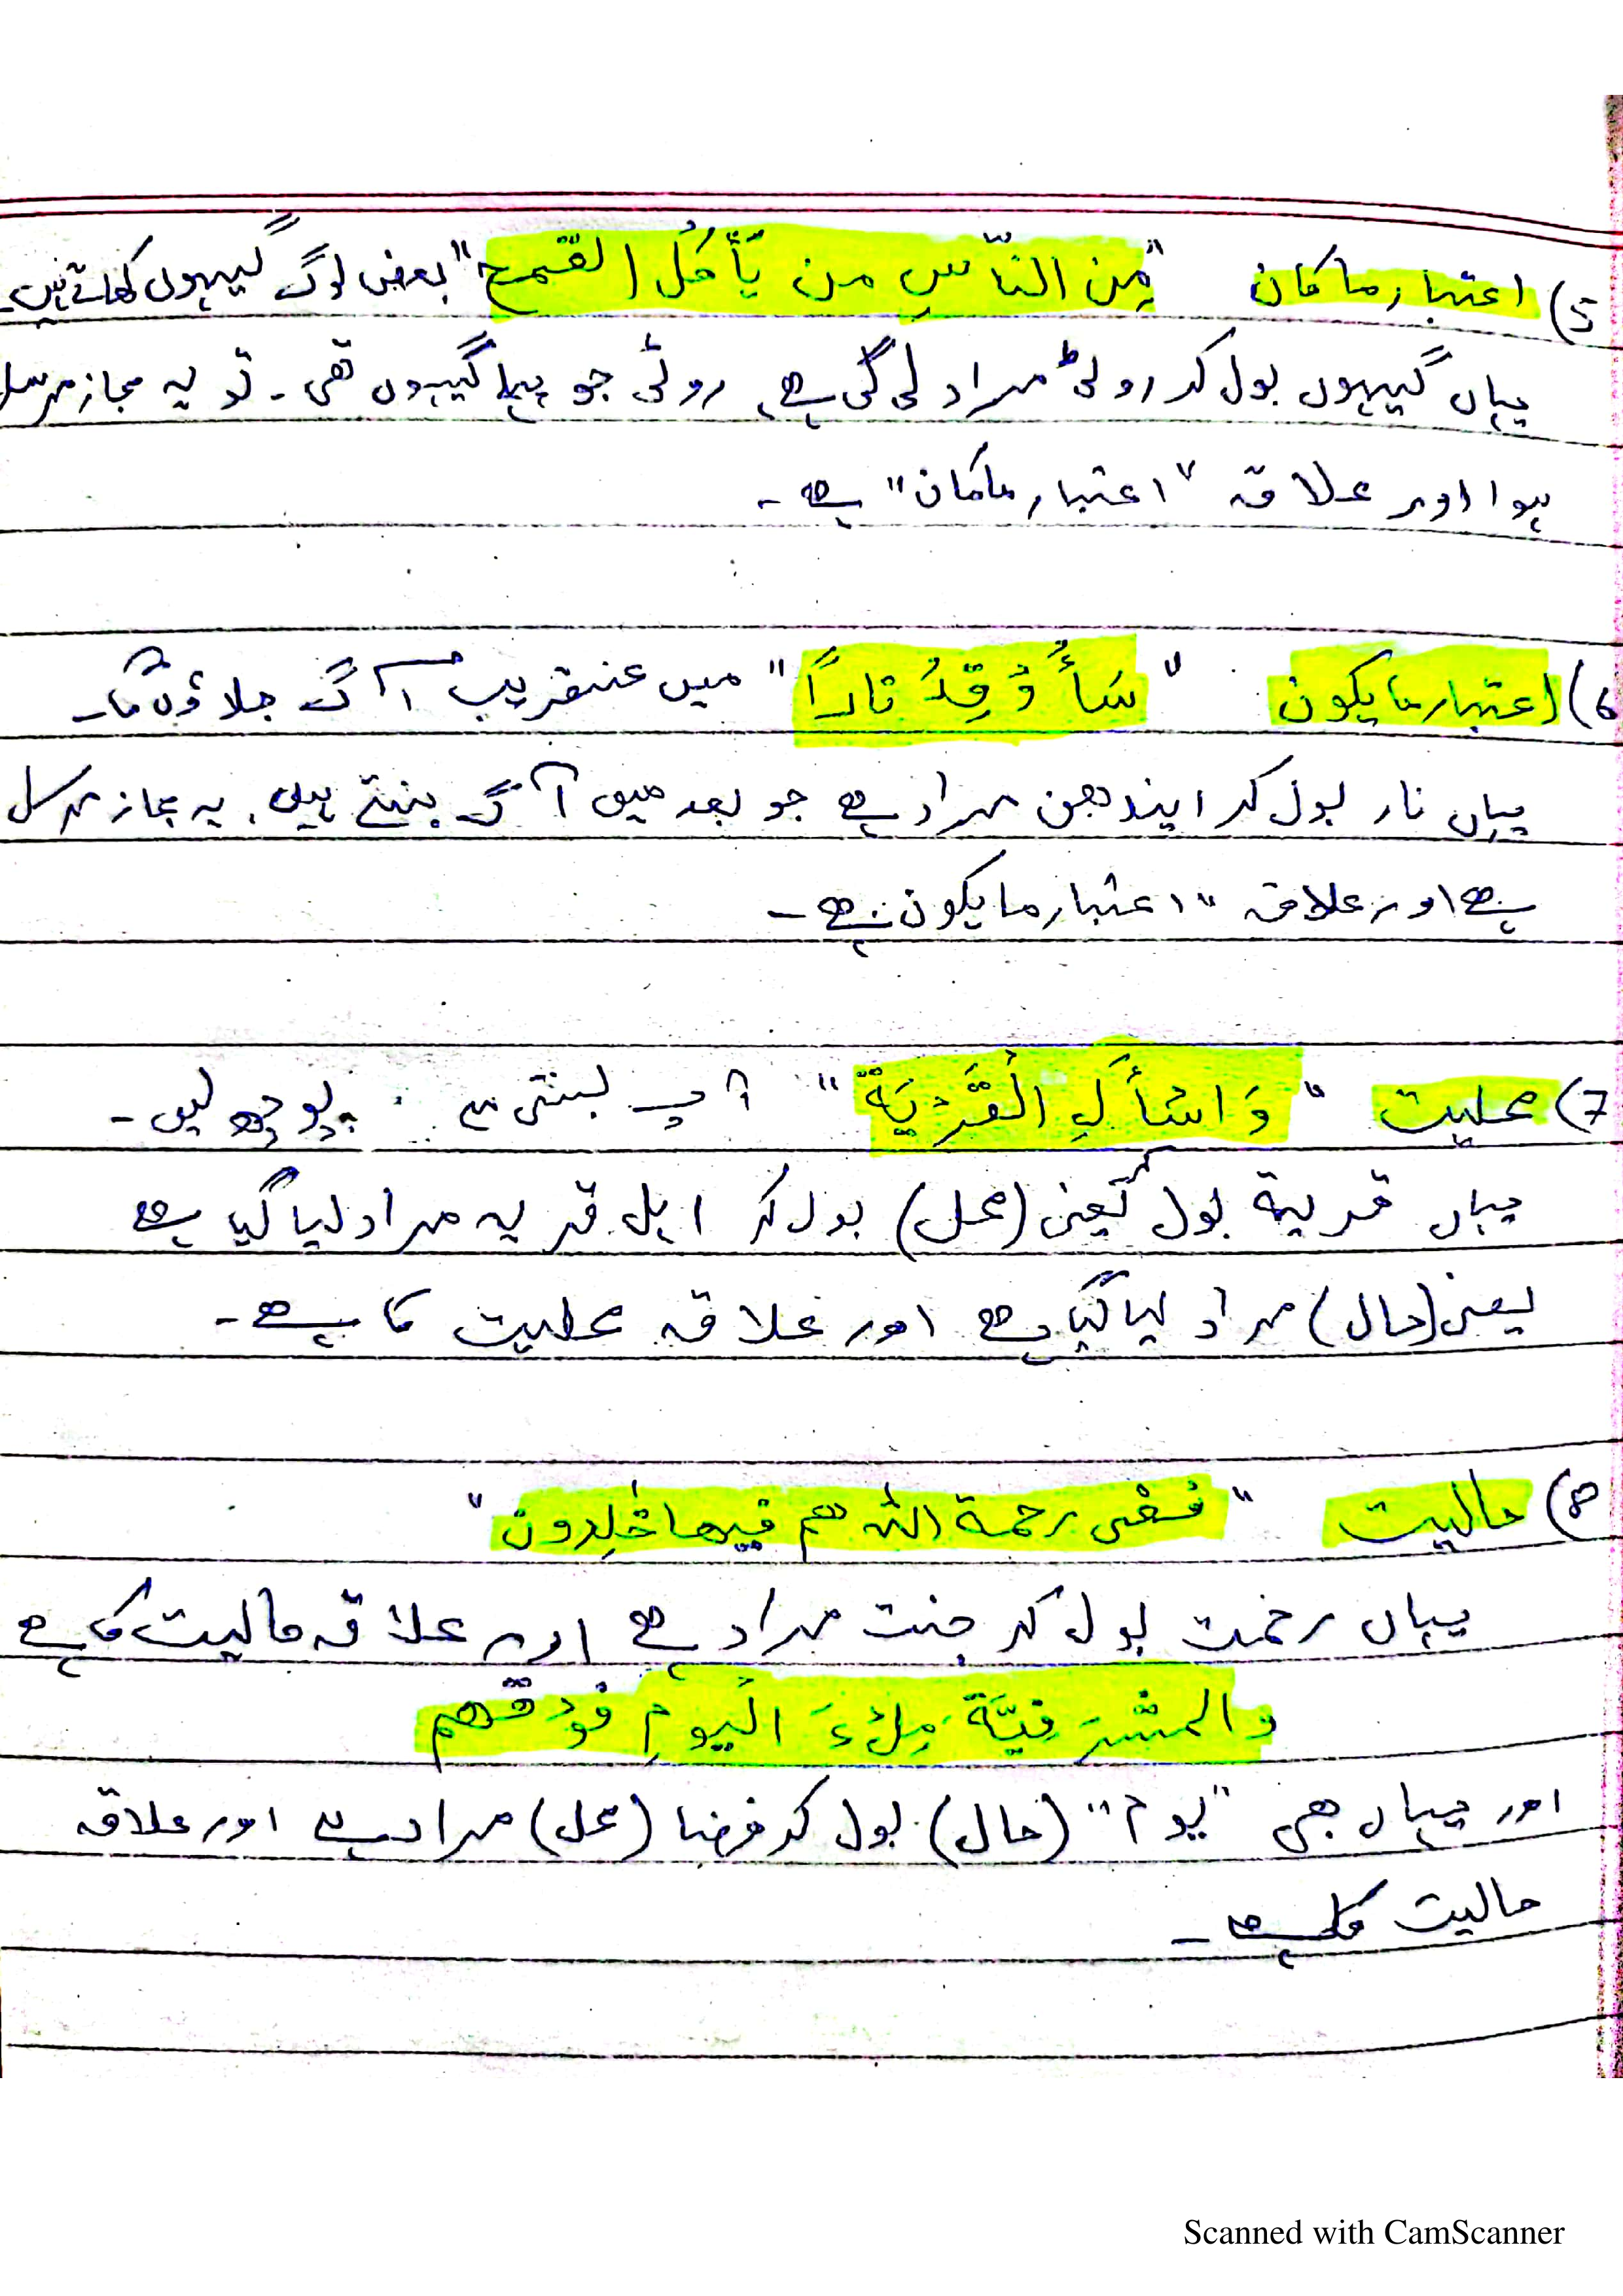 5) اعتبار ما كان "مِن النَّاسِ من يَّأكُلُ القمح" بعض لوگ گیہوں کھاتے ہیں۔
یہاں گیہوں بول کر روٹی مراد لی گئی ہے روٹی جو پہلے گیہوں تھی۔ تو یہ مجاز مرسل
ہوا اور علاقہ "اعتبار ماکان" ہے۔
6) اعتبار ما یکون "سَأُوْقِدُ نَاراً" میں عنقریب آگ جلاؤں گا۔
یہاں نار بول کر ایندھن مراد ہے جو بعد میں آگ بنتے ہیں۔ یہ مجاز مرسل
ہے اور علاقہ "اعتبار ما یکون ہے۔
7) محلیت "وَاسْأَلِ الْقَرْيَةَ" آپ بستی سے پوچھ لیں۔
یہاں قریۃ بول یعنی (محل) بول کر اہل قریہ مراد لیا گیا ہے
یعنی (حال) مراد لیا گیا ہے اور علاقہ محلیت کا ہے۔
8) حالیت "ففی رحمة الله هم فيها خٰلِدون"
یہاں رحمت بول کر جنت مراد ہے اور علاقہ حالیت کا ہے
والمشرفيَّة مِلْءَ اليومِ فوقهم
اور یہاں بھی "یوم" (حال) بول کر فضا (محل) مراد ہے اور علاقہ
حالیت کا ہے۔
Scanned with CamScanner